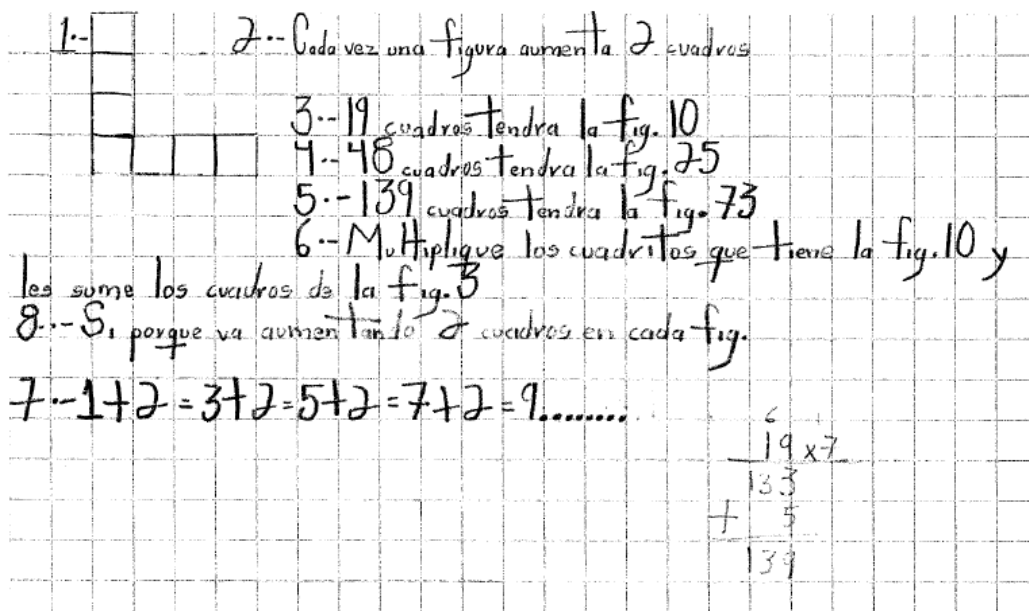 1.-
2.- Cada vez una figura aumenta 2 cuadros
3.- 19 cuadros tendra la fig. 10
4.- 48 cuadros tendra la fig. 25
5.- 139 cuadros tendra la fig. 73
6.- Multiplique los cuadritos que tiene la fig. 10 y
les sume los cuadros de la fig. 3
8.- Si porque va aumentando 2 cuadros en cada fig.
7.- 1+2=3+2=5+2=7+2=9.........
6
19 x7
133
+ 5
139